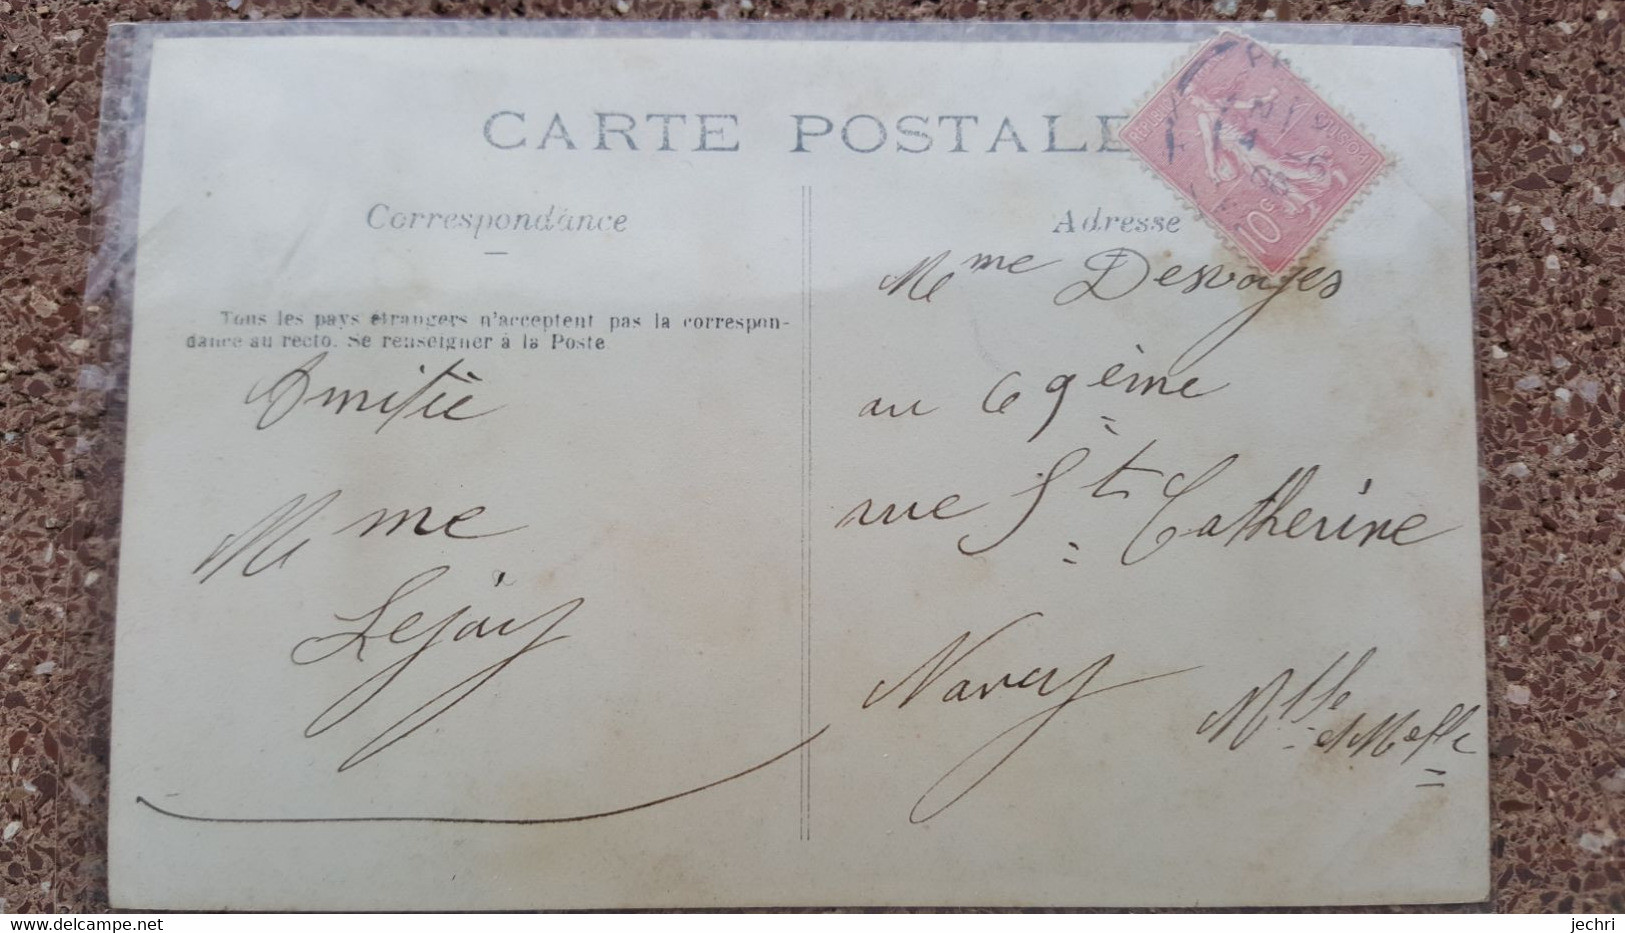 CARTE POSTALE
Correspondance
Tous les pays étrangers n'acceptent pas la correspon-
dance au recto. Se renseigner à la Poste
Amitié
Mme
Lejay
Adresse
Mme Desvoyes
au 69ème
rue St Catherine
Nancy
Mthe et Melle
10c
POSTES
jechri